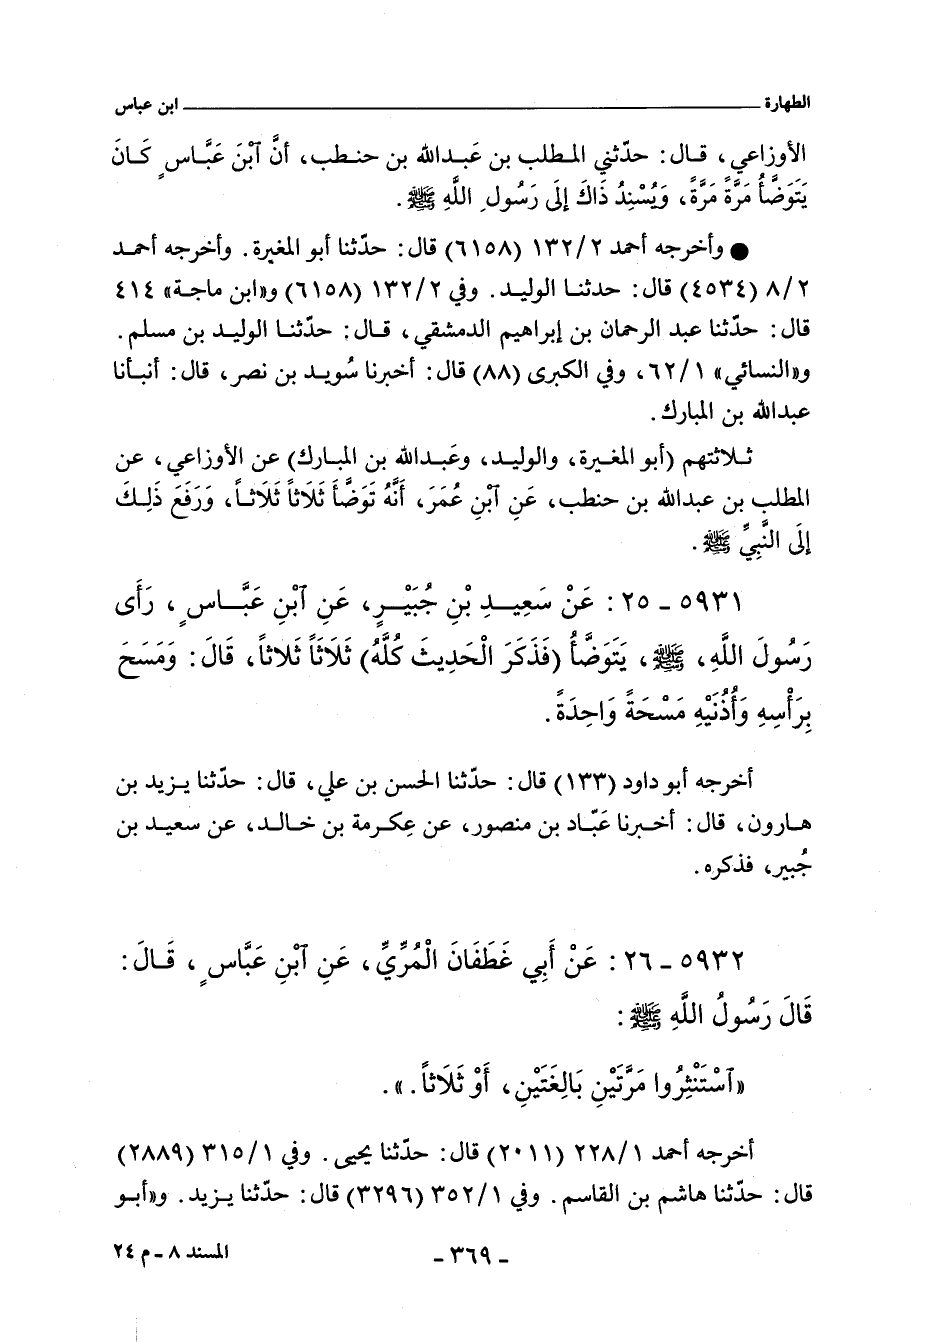 الطهارة ــــــــــ ابن عباس
الأوزاعي، قال: حدّثني المطلب بن عَبدالله بن حنطب، أنَّ ٱبْنَ عَبَّاسٍ كَانَ
يَتَوَضَّأُ مَرَّةً مَرَّةً، وَيُسْنِدُ ذَاكَ إِلَى رَسُولِ اللَّهِ ﷺ.
● وأخرجه أحمد ١٣٢/٢ (٦١٥٨) قال: حدّثنا أبو المغيرة. وأخرجه أحمد
٨/٢ (٤٥٣٤) قال: حدثنا الوليد. وفي ١٣٢/٢ (٦١٥٨) و«ابن ماجة» ٤١٤
قال: حدّثنا عبد الرحمان بن إبراهيم الدمشقي، قال: حدّثنا الوليد بن مسلم.
و«النسائي» ٦٢/١، وفي الكبرى (٨٨) قال: أخبرنا سُويد بن نصر، قال: أنبأنا
عبدالله بن المبارك.
ثلاثتهم (أبو المغيرة، والوليد، وعَبدالله بن المبارك) عن الأوزاعي، عن
المطلب بن عبدالله بن حنطب، عَنِ ٱبْنِ عُمَرَ، أَنَّهُ تَوَضَّأَ ثَلَاثاً ثَلَاثاً، وَرَفَعَ ذَلِكَ
إِلَى النَّبِيِّ ﷺ.
٥٩٣١ ـ ٢٥: عَنْ سَعِيدِ بْنِ جُبَيْرٍ، عَنِ ٱبْنِ عَبَّاسٍ، رَأَى
رَسُولَ اللَّهِ، ﷺ، يَتَوَضَّأُ (فَذَكَرَ الْحَدِيثَ كُلَّهُ) ثَلَاثَاً ثَلَاثاً، قَالَ: وَمَسَحَ
بِرَأْسِهِ وَأُذُنَيْهِ مَسْحَةً وَاحِدَةً.
أخرجه أبو داود (١٣٣) قال: حدّثنا الحسن بن علي، قال: حدّثنا يزيد بن
هارون، قال: أخبرنا عَبّاد بن منصور، عن عِكرمة بن خالد، عن سعيد بن
جُبير، فذكره.
٥٩٣٢ ـ ٢٦: عَنْ أَبِي غَطَفَانَ الْمُرِّيِّ، عَنِ ٱبْنِ عَبَّاسٍ، قَالَ:
قَالَ رَسُولُ اللَّهِ ﷺ:
«ٱسْتَنْثِرُوا مَرَّتَيْنِ بَالِغَتَيْنِ، أَوْ ثَلَاثاً.».
أخرجه أحمد ٢٢٨/١ (٢٠١١) قال: حدّثنا يحيى. وفي ٣١٥/١ (٢٨٨٩)
قال: حدّثنا هاشم بن القاسم. وفي ٣٥٢/١ (٣٢٩٦) قال: حدّثنا يزيد. و«أبو
ـ ٣٦٩ ـ
المسند ٨ ـ م ٢٤